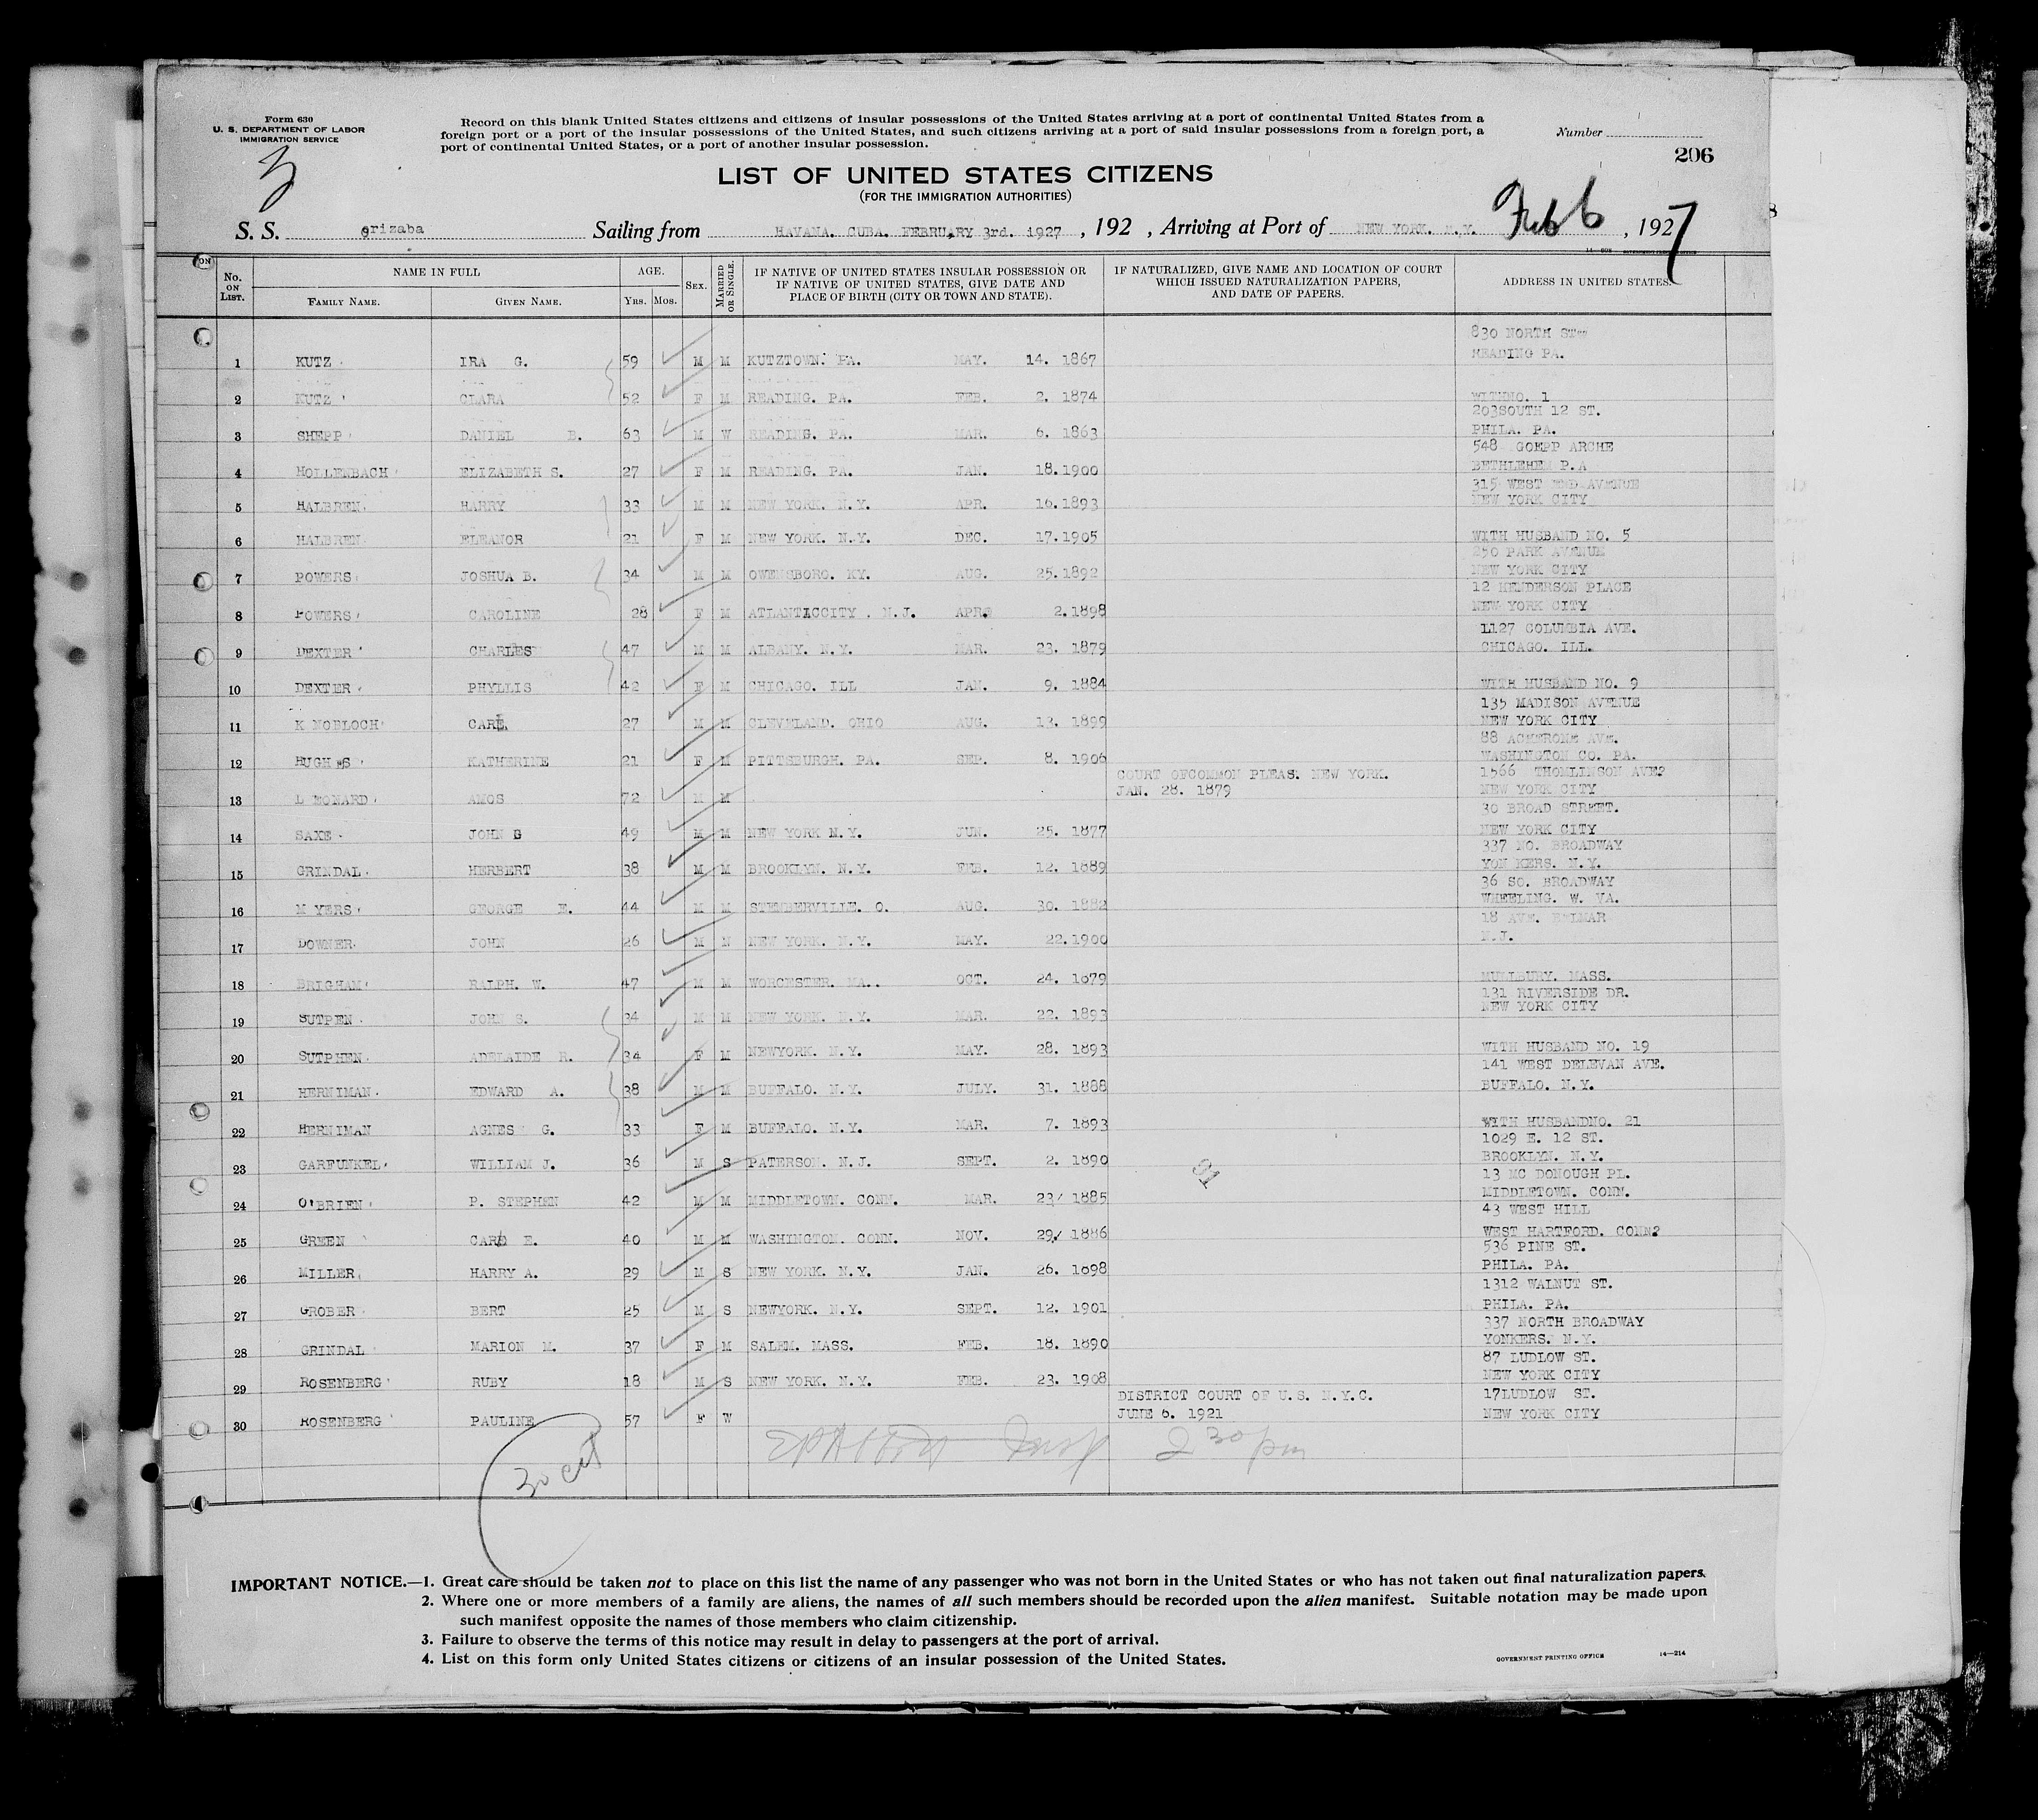 Form 630
U. S. DEPARTMENT OF LABOR
IMMIGRATION SERVICE
3
Record on this blank United States citizens and citizens of insular possessions of the United States arriving at a port of continental United States from a
foreign port or a port of the insular possessions of the United States, and such citizens arriving at a port of said insular possessions from a foreign port, a
port of continental United States, or a port of another insular possession.
Number
206
LIST OF UNITED STATES CITIZENS
(FOR THE IMMIGRATION AUTHORITIES)
S. S. orizaba Sailing from HAVANA. CUBA. FEBRUARY 3rd. 1927 , 192 , Arriving at Port of NEW YORK. N.Y. Feb 6 , 1927
No. ON LIST. NAME IN FULL FAMILY NAME. GIVEN NAME. AGE. YRS. MOS. SEX. MARRIED OR SINGLE. IF NATIVE OF UNITED STATES INSULAR POSSESSION OR IF NATIVE OF UNITED STATES, GIVE DATE AND PLACE OF BIRTH (CITY OR TOWN AND STATE). IF NATURALIZED, GIVE NAME AND LOCATION OF COURT WHICH ISSUED NATURALIZATION PAPERS, AND DATE OF PAPERS. ADDRESS IN UNITED STATES.
830 NORTH ST
1 KUTZ IRA G. 59 M M KUTZTOWN. PA. MAY. 14. 1867 READING PA.
2 KUTZ CLARA 52 F M READING. PA. FEB. 2. 1874 WITHNO. 1
203SOUTH 12 ST.
3 SHEPP DANIEL B. 63 M W READING. PA. MAR. 6. 1863 PHILA. PA.
548 GOEPP ARCHE
4 HOLLENBACH ELIZABETH S. 27 F M READING. PA. JAN. 18.1900 BETHLEHEM P.A
315 WEST END AVENUE
5 HALBREN. HARRY 33 M M NEW YORK. N.Y. APR. 16.1893 NEW YORK CITY
6 HALBREN ELEANOR 21 F M NEW YORK. N.Y. DEC. 17.1905 WITH HUSBAND NO. 5
250 PARK AVENUE
7 POWERS JOSHUA B. 34 M M OWENSBORO. KY. AUG. 25.1892 NEW YORK CITY
12 HENDERSON PLACE
8 POWERS CAROLINE 28 F M ATLANTICCITY . N.J. APR. 2.1898 NEW YORK CITY
1127 COLUMBIA AVE.
9 DEXTER CHARLES 47 M M ALBANY. N.Y. MAR. 23. 1879 CHICAGO. ILL.
10 DEXTER PHYLLIS 42 F M CHICAGO. ILL JAN. 9. 1884 WITH HUSBAND NO. 9
135 MADISON AVENUE
11 K NOBLOCH CARL 27 M M CLEVELAND. OHIO AUG. 13. 1899 NEW YORK CITY
88 AVE.
12 HUGHES KATHERINE 21 F M PITTSBURGH. PA. SEP. 8. 1906 WASHINGTON CO. PA.
COURT OFCOMMON PLEAS. NEW YORK. 1566 THOMLINSON AVE?
13 L EONARD AMOS 72 M M JAN. 28. 1879 NEW YORK CITY
30 BROAD STREET.
14 SAXE JOHN G 49 M M NEW YORK N.Y. JUN. 25. 1877 NEW YORK CITY
337 NO. BROADWAY
15 GRINDAL HERBERT 38 M M BROOKLYN. N.Y. FEB. 12. 1889 YON KERS. N.Y.
36 SO. BROADWAY
16 M YERS GEORGE E. 44 M M STEMBERVILLE. O. AUG. 30. 1882 WHEELING. W. VA.
18 AVE. BELMAR
17 DOWNER JOHN 26 M N NEW YORK. N.Y. MAY. 22.1900 N.J.
18 BRIGHAM RALPH. W. 47 M M WORCESTER. MA.. OCT. 24. 1879 MULLBURY. MASS.
131 RIVERSIDE DR.
19 SUTPEN JOHN S. 34 M M NEW YORK. N.Y. MAR. 22. 1893 NEW YORK CITY
20 SUTPHEN ADELAIDE R. 34 F M NEWYORK. N.Y. MAY. 28. 1893 WITH HUSBAND NO. 19
141 WEST DELEVAN AVE.
21 HERNIMAN. EDWARD A. 38 M M BUFFALO. N.Y. JULY. 31. 1888 BUFFALO. N.Y.
22 HERNIMAN AGNES G. 33 F M BUFFALO. N.Y. MAR. 7. 1893 WITH HUSBANDNO. 21
1029 E. 12 ST.
23 GARFUNKEL WILLIAM J. 36 M S PATERSON. N.J. SEPT. 2. 1890 BROOKLYN. N.Y.
13 MC DONOUGH PL.
24 O'BRIEN P. STEPHEN 42 M M MIDDLETOWN. CONN. MAR. 23/ 1885 MIDDLETOWN. CONN.
43 WEST HILL
25 GREEN CARL E. 40 M M WASHINGTON. CONN. NOV. 29/ 1886 WEST HARTFORD. CONN?
536 PINE ST.
26 MILLER HARRY A. 29 M S NEW YORK. N.Y. JAN. 26. 1898 PHILA. PA.
1312 WALNUT ST.
27 GROBER BERT 25 M S NEWYORK. N.Y. SEPT. 12. 1901 PHILA. PA.
337 NORTH BROADWAY
28 GRINDAL MARION M. 37 F M SALEM. MASS. FEB. 18. 1890 YONKERS. N.Y.
87 LUDLOW ST.
29 ROSENBERG RUBY 18 M S NEW YORK. N.Y. FEB. 23. 1908 NEW YORK CITY
DISTRICT COURT OF U.S. N.Y.C. 17LUDLOW ST.
30 ROSENBERG PAULINE 57 F W JUNE 6. 1921 NEW YORK CITY
Insp 2 30 pm
30 cit
IMPORTANT NOTICE.—1. Great care should be taken not to place on this list the name of any passenger who was not born in the United States or who has not taken out final naturalization papers.
2. Where one or more members of a family are aliens, the names of all such members should be recorded upon the alien manifest. Suitable notation may be made upon
such manifest opposite the names of those members who claim citizenship.
3. Failure to observe the terms of this notice may result in delay to passengers at the port of arrival.
4. List on this form only United States citizens or citizens of an insular possession of the United States.
GOVERNMENT PRINTING OFFICE 14—214